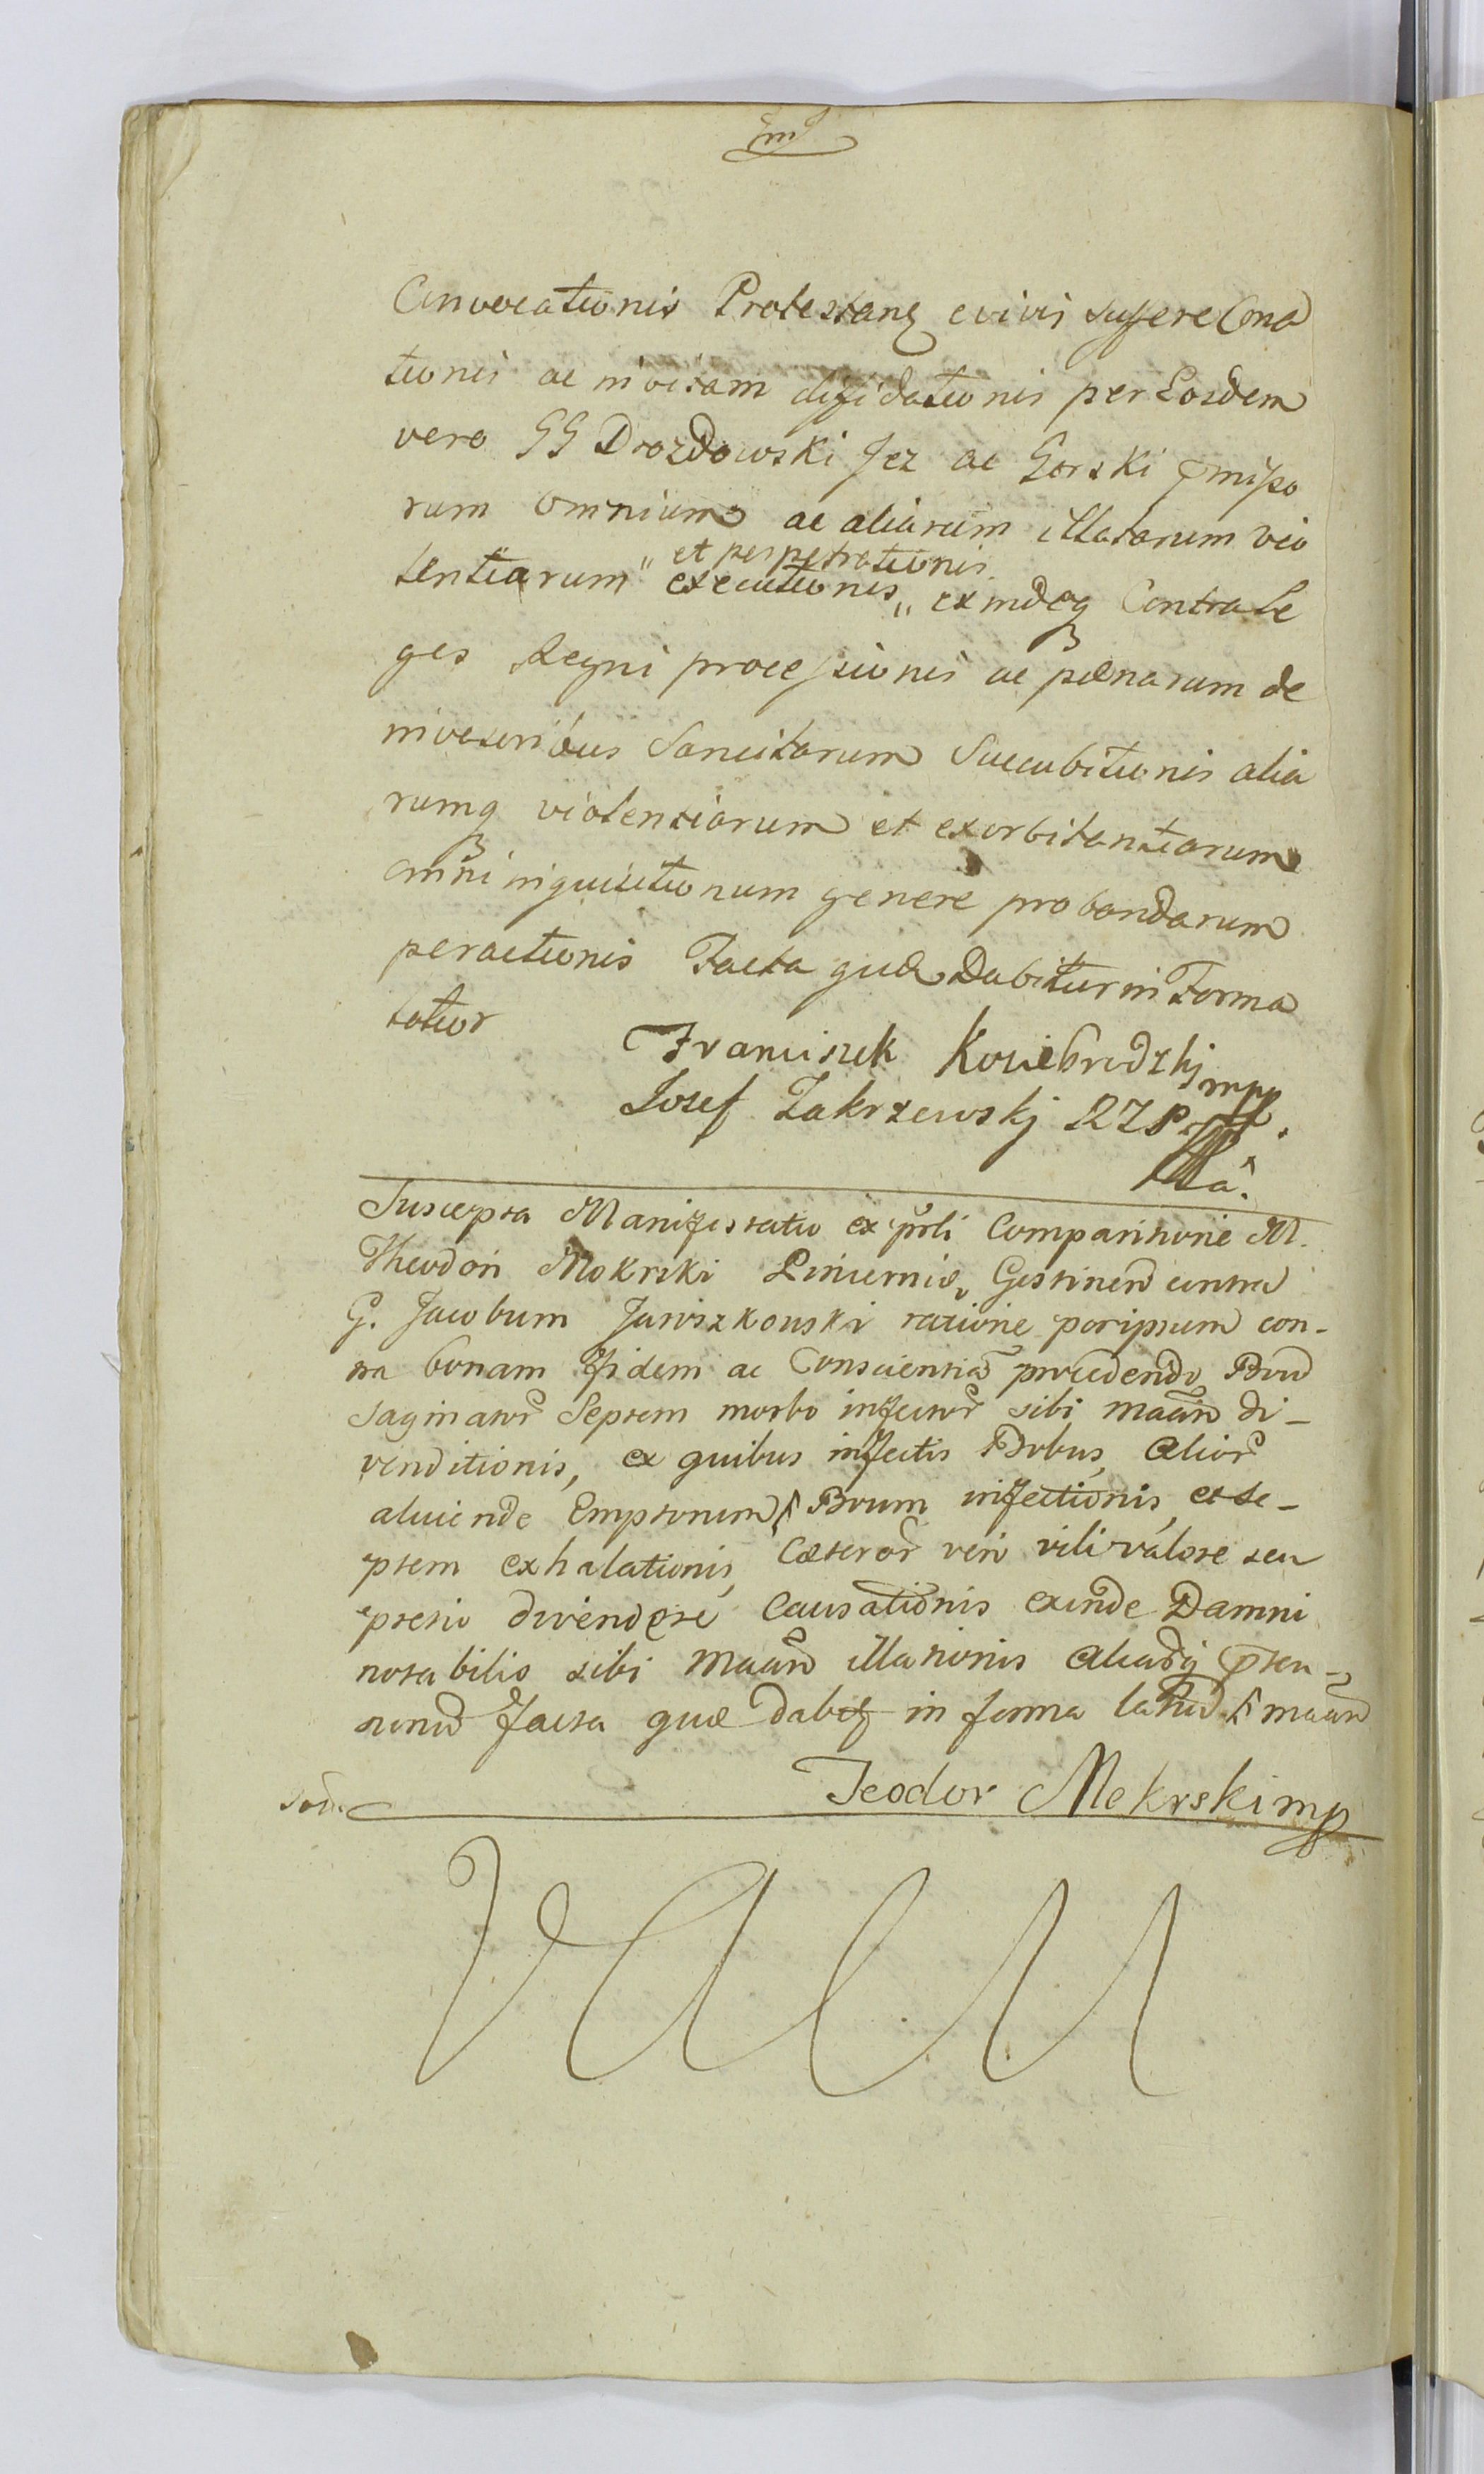 Convocationis Protestanẽ e vivis suffere Cona
tionis ac in vicam diffidationis per Eosdem
vero GG Drozdowski Jez ac Gorski pmisso
rum omnium ac aliarum illatarum vio
et perpetrationis
lentiarum executionis exindeq Contra Le
ges Regni processionis ac pœnarum de
invasoribus Sancitarum Succubitionis alia
rumq violentiarum et exorbitantiarum
omni inquisitionum genere probandarum
peractionis Facta quæ Dabitur in Forma
latior
Franciszek Koziebrodzkj mpp
Josef Zakrzewskj RZP
Suscepta Manifestatio ex psli Comparitione M.
Theodori Mokrski Pincernæ Gostinen contra
G. Jacobum Jaroszkowski ratione per ipsum con-
tra bonam fidem ac Conscientiã procedendo Boũ
saginator Septem morbo infector sibi Maan di-
venditionis, ex quibus infectis Bobus, alior
aliunde Emptorum Boum infectionis, et se-
ptem exhalationis, Cæteror vero vili valore seu
pretio divendere Causationis exinde Damni
notabilis sibi Maan illationis aliarq pten-
sionũ facta quæ dabit in forma latiũ maan
Teodor Mokrski mp